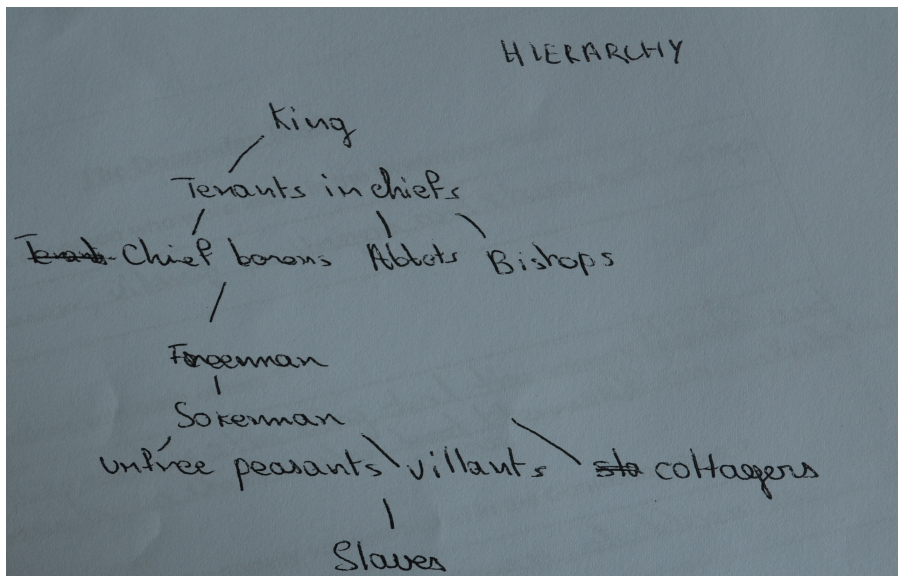 HIERARCHY
King
Tenants in chiefs
Chief barons Abbots Bishops
Freeman
Sokeman
unfree peasants villants cottagers
Slaves